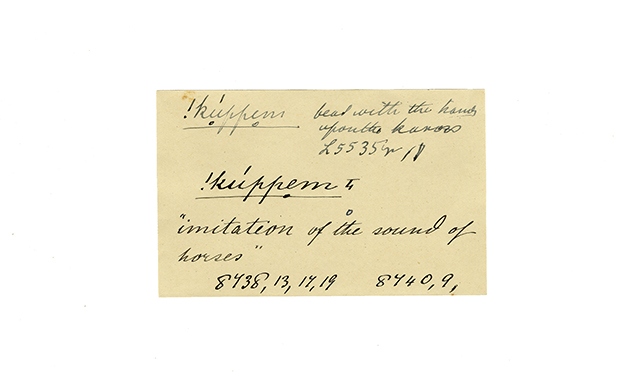 !kúppem beat with the hands
upon the kaross
L5535
!kúppem
"imitation of the sound of
horses"
8438, 13, 17, 19 8440, 9,